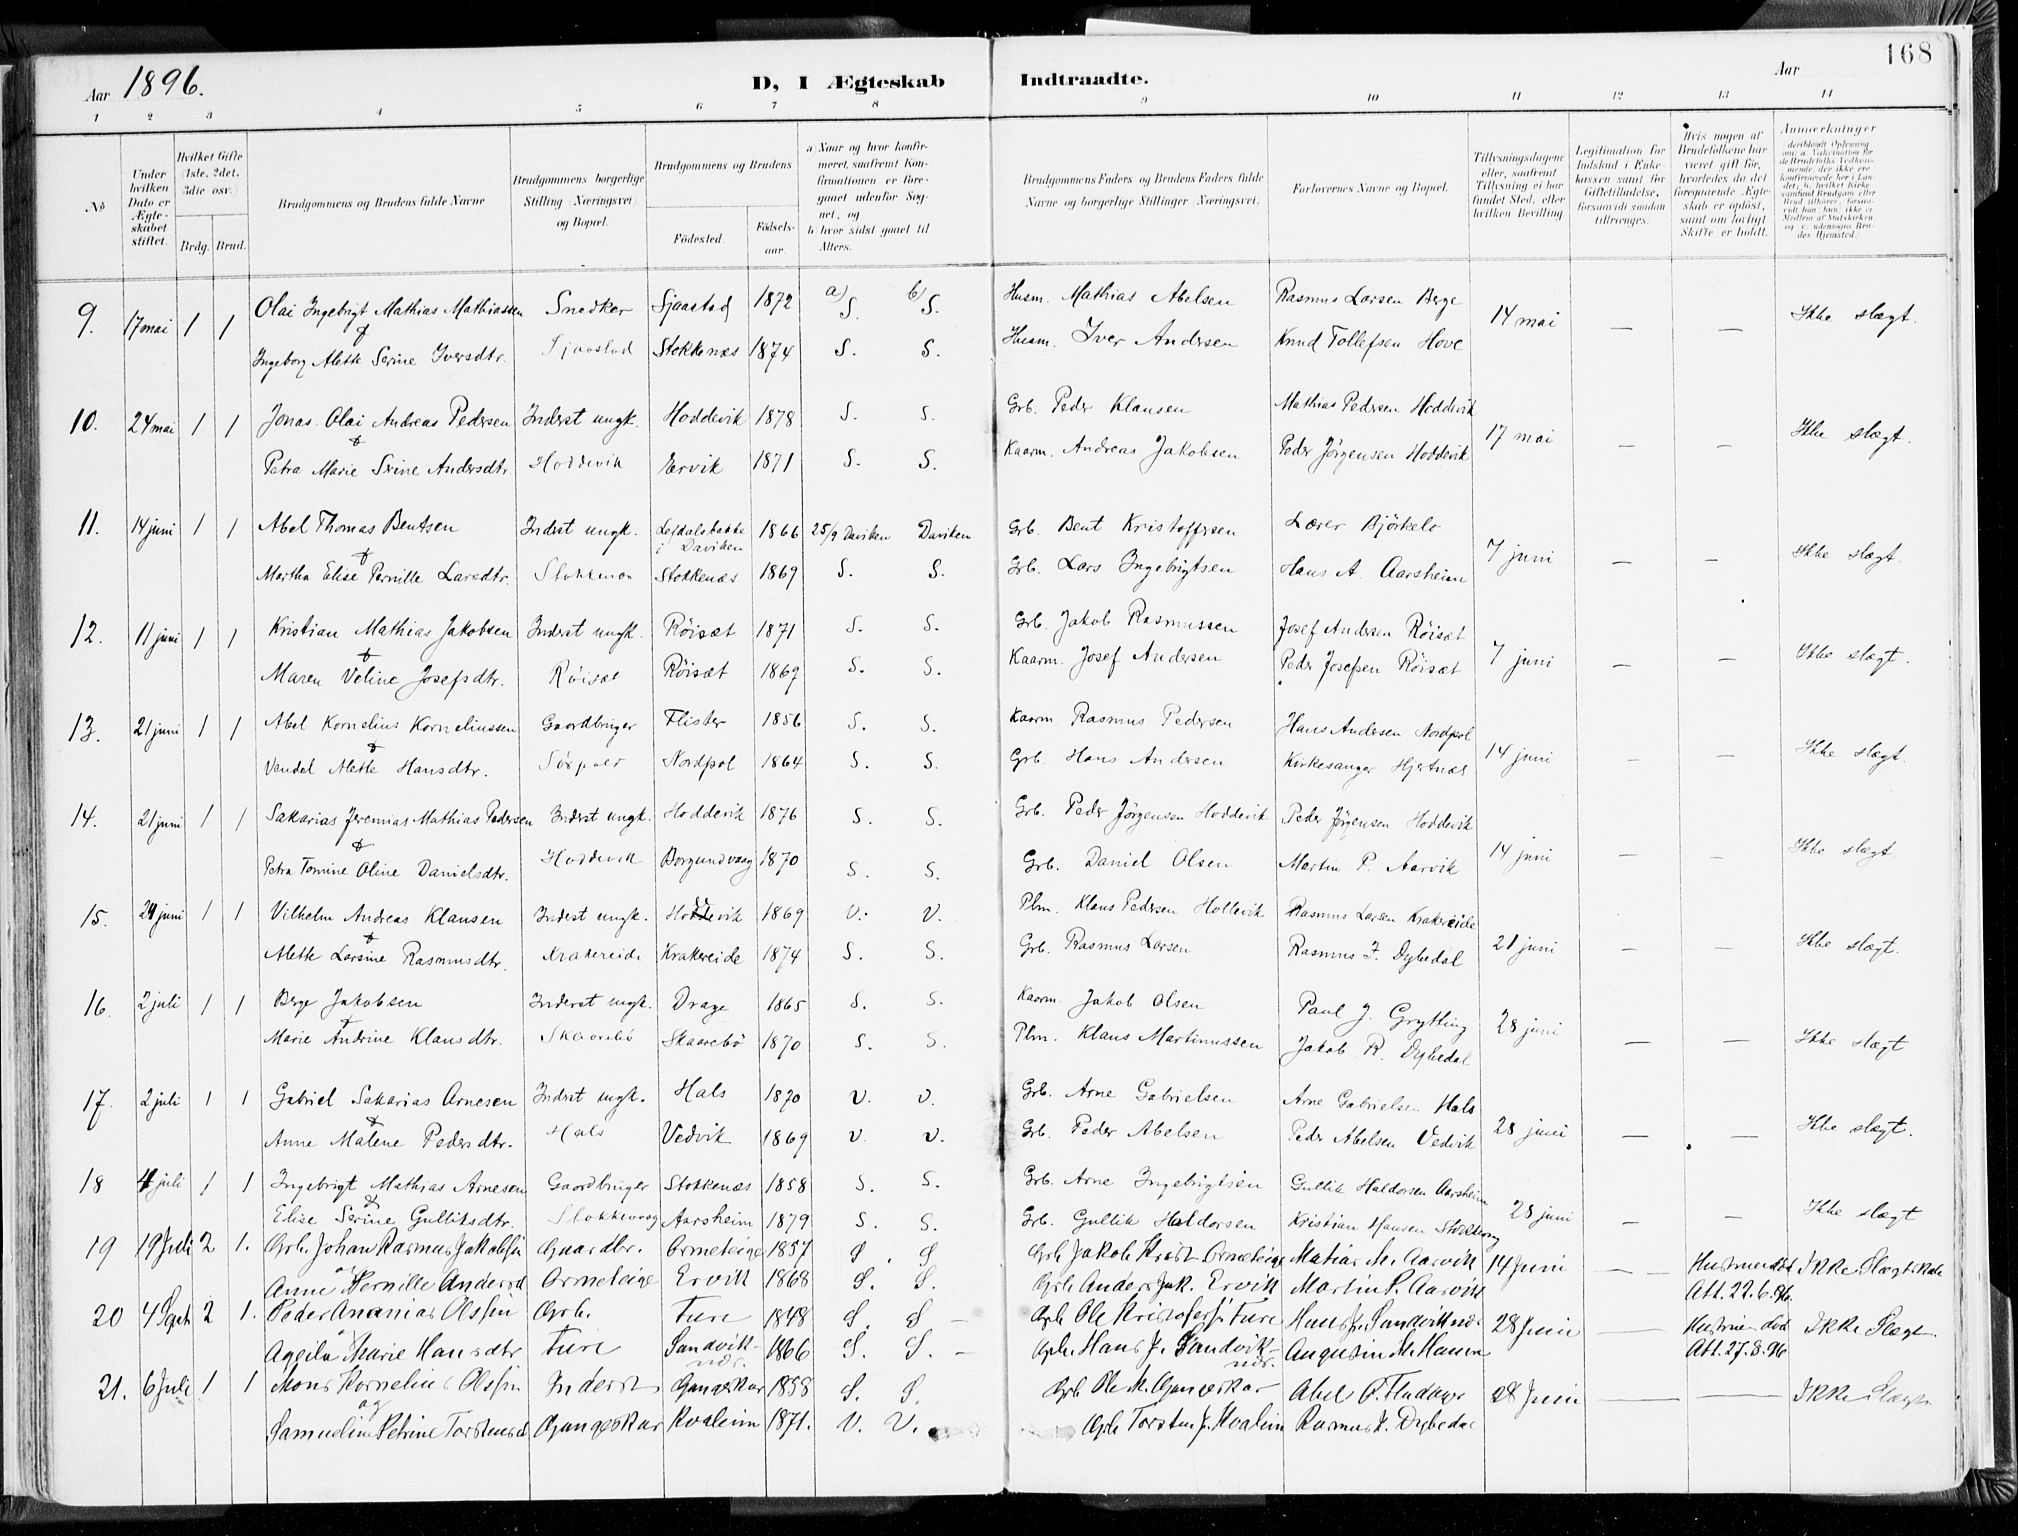 168
Aar 1896. D, I Ægteskab Indtraadte. Aar
1 2 3 4 5 6 7 8 9 10 11 12 13 14
№
Under hvilken Dato er Ægteskabet stiftet.
Hvilket Gifte (1ste, 2det, 3die osv.)
Brdg. Brud.
Brudgommens og Brudens fulde Navne
Brudgommens borgerlige Stilling (Næringsvei) og Bopæl.
Brudgommens og Brudens
Fødested. Fødsels-aar.
a) Naar og hvor konfirmeret, saafremt Konfirmationen er foregaaet udenfor Sognet, og
b) hvor sidst gaaet til Alters.
Brudgommens Faders og Brudens Faders fulde Navne og borgerlige Stillinger (Næringsvei).
Forlovernes Navne og Bopæl.
Tillysningsdagene eller, saafremt Tillysning ei har fundet Sted, efter hvilken Bevilling
Legitimation for Indskud i Enkekassen samt for Giftetilladelse, forsaavidt saadan tiltrænges.
Hvis nogen af Brudefolkene har været gift før, hvorledes da det foregaaende Ægteskab er opløst, samt om lovligt Skifte er holdt.
Anmerkninger
9. 17 mai 1 1 Olai Ingebrigt Mathias Mathiassen Snedker Sjaastad 1872 a) S. b) S. Husm. Mathias Abelsen Rasmus Larsen Berge 14 mai — — Ikke slægt.
& Ingeborg Alette Serine Iversdtr. Sjaastad Stokkenæs 1874 S. S. Husm. Iver Andersen Knud Tollefsen Hove
10. 24 mai 1 1 Jonas Olai Andreas Pedersen Inderst ungk. Hoddevik 1878 S. S. Grb. Peder Klausen Mathias Pedersen Hoddevik 17 mai — — Ikke slægt.
& Petra Marie Serine Andersdtr. Hoddevik Ervik 1871 S. S. Kaarm. Andreas Jakobsen Peder Jørgensen Hoddevik
11. 14 juni 1 1 Abel Thomas Bentsen Inderst ungk. i Daviken 1866 25/9 Daviken Daviken Grb. Bent Kristoffersen Lærer Bjørkelo 7 juni — — Ikke slægt.
& Martha Elise Pernille Larsdtr. Stokkenæs Stokkenæs 1869 S. S. Grb. Lars Ingebrigtsen Hans A. Aarsheim
12. 11 juni 1 1 Kristian Mathias Jakobsen Inderst ungk. Røisæt 1871 S. S. Grb. Jakob Rasmussen Josef Andersen Røisæt 7 juni — — Ikke slægt.
& Maren Veline Josefsdtr. Røisæt Røisæt 1869 S. S. Kaarm. Josef Andersen Peder Josefsen Røisæt
13. 21 juni 1 1 Abel Kornelius Korneliussen Gaardbruger Flister 1856 S. S. Kaarm Rasmus Pedersen Hans Andersen Nordpol 14 juni — — Ikke slægt.
& Vendel Alette Hansdtr. Sørpoll Nordpol 1864 S. S. Grb. Hans Andersen Kirkesanger Hjertnæs
14. 21 juni 1 1 Sakarias Jeremias Mathias Pedersen Inderst ungk. Hoddevik 1876 S. S. Grb. Peder Jørgensen Hoddevik Peder Jørgensen Hoddevik 14 juni — — Ikke slægt
& Petra Tomine Oline Danielsdtr. Hoddevik Borgundvaag 1870 S. S. Grb. Daniel Olsen Martin P. Aarvik
15. 24 juni 1 1 Vilhelm Andreas Klausen Inderst ungk. 1869 V. V. Plm. Klaus Pedersen Hollevik Rasmus Larsen Krakereide 21 juni — — Ikke slægt.
& Alette Larsine Rasmusdtr. Krakereide Krakereide 1874 S. S. Grb. Rasmus Larsen Rasmus J. Dybedal
16. 2 juli 1 1 Berge Jakobsen Inderst ungk. Drage 1865 S. S. Kaarm. Jakob Olsen Paul J. Grytting 28 juni — — Ikke slægt
& Marie Andrine Klausdtr. Skaarebø Skaarebø 1870 S. S. Plm. Klaus Martinussen Jakob R. Dybedal
17. 2 juli 1 1 Gabriel Sakarias Arnesen Inderst ungk. Hals 1870 V. V. Grb. Arne Gabrielsen Arne Gabrielsen Hals 28 juni — — Ikke slægt.
& Anne Malene Pedersdtr. Hals Vedvik 1869 V. V. Grb. Peder Abelsen Peder Abelsen Vedvik
18 4 juli 1 1 Ingebrigt Mathias Arnesen Gaardbruger Stokkenæs 1858 S. S. Grb. Arne Ingebrigtsen Gullik Haldorsen Aarsheim 28 juni — — Ikke slægt
& Elise Serine Gulliksdtr. Stokkevaag Aarsheim 1879 S. S. Grb. Gullik Haldorsen Kristian Hansen
19 19 Juli 2 1. Grb. Johan Rasmus Jakobsen Gaardbr. Ormeteige 1857 S. S. Grb Jakob Ormeteige Mathias M. Aarvik 14 Juni — — Hustruen død Att. 22.6.96. Ikke Slægtskab
Anne Pernille Andersd Ormeteige Ervik 1868 S. S. Grb. Anders Jak. Ervik Martin P. Aarvik
20 4 Sept 2 1. Peder Ananias Olssen Grb. Fure 1848 S. S. — Grb. Ole Kristofers. Fure Hans J. Sandviknæs 28 Juni — Hustruen død Att. 27.8.96 Ikke Slægt
Marie Hansdtr Fure Sandviknæs. 1866 S. S. — Grb. Hans J. Sandviknæs. Augustin M. Hansen
21. 6 Juli 1 1 Mons Kornelius Olssen Inderst Gangeskar 1858 S. S. Grb Ole M. Gangeskar Abel 28 Juni — — Ikke Slægt.
og Samueline Petrine Torstensd Gangeskar Kvalheim 1871. V. V. Grb Torsten J. Kvalheim Rasmus J. Dybedal